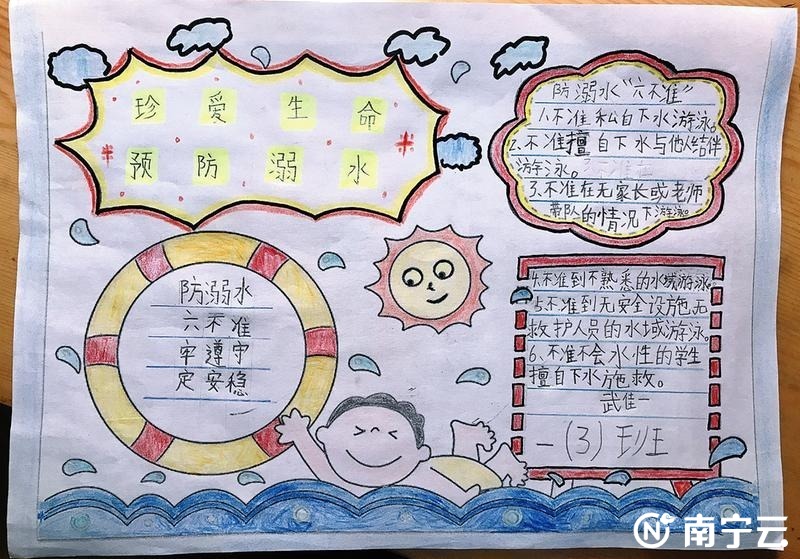 珍爱生命
预防溺水
防溺水“六不准”
1.不准私自下水游泳。
2.不准擅自下水与他人结伴
游泳。
3.不准在无家长或老师
带队的情况下游泳。
防溺水
六不准
牢遵守
定安稳
4.不准到不熟悉的水域游泳。
5.不准到无安全设施无
救护人员的水域游泳。
6、不准不会水性的学生
擅自下水施救。
武佳一
一(3)班
南宁云